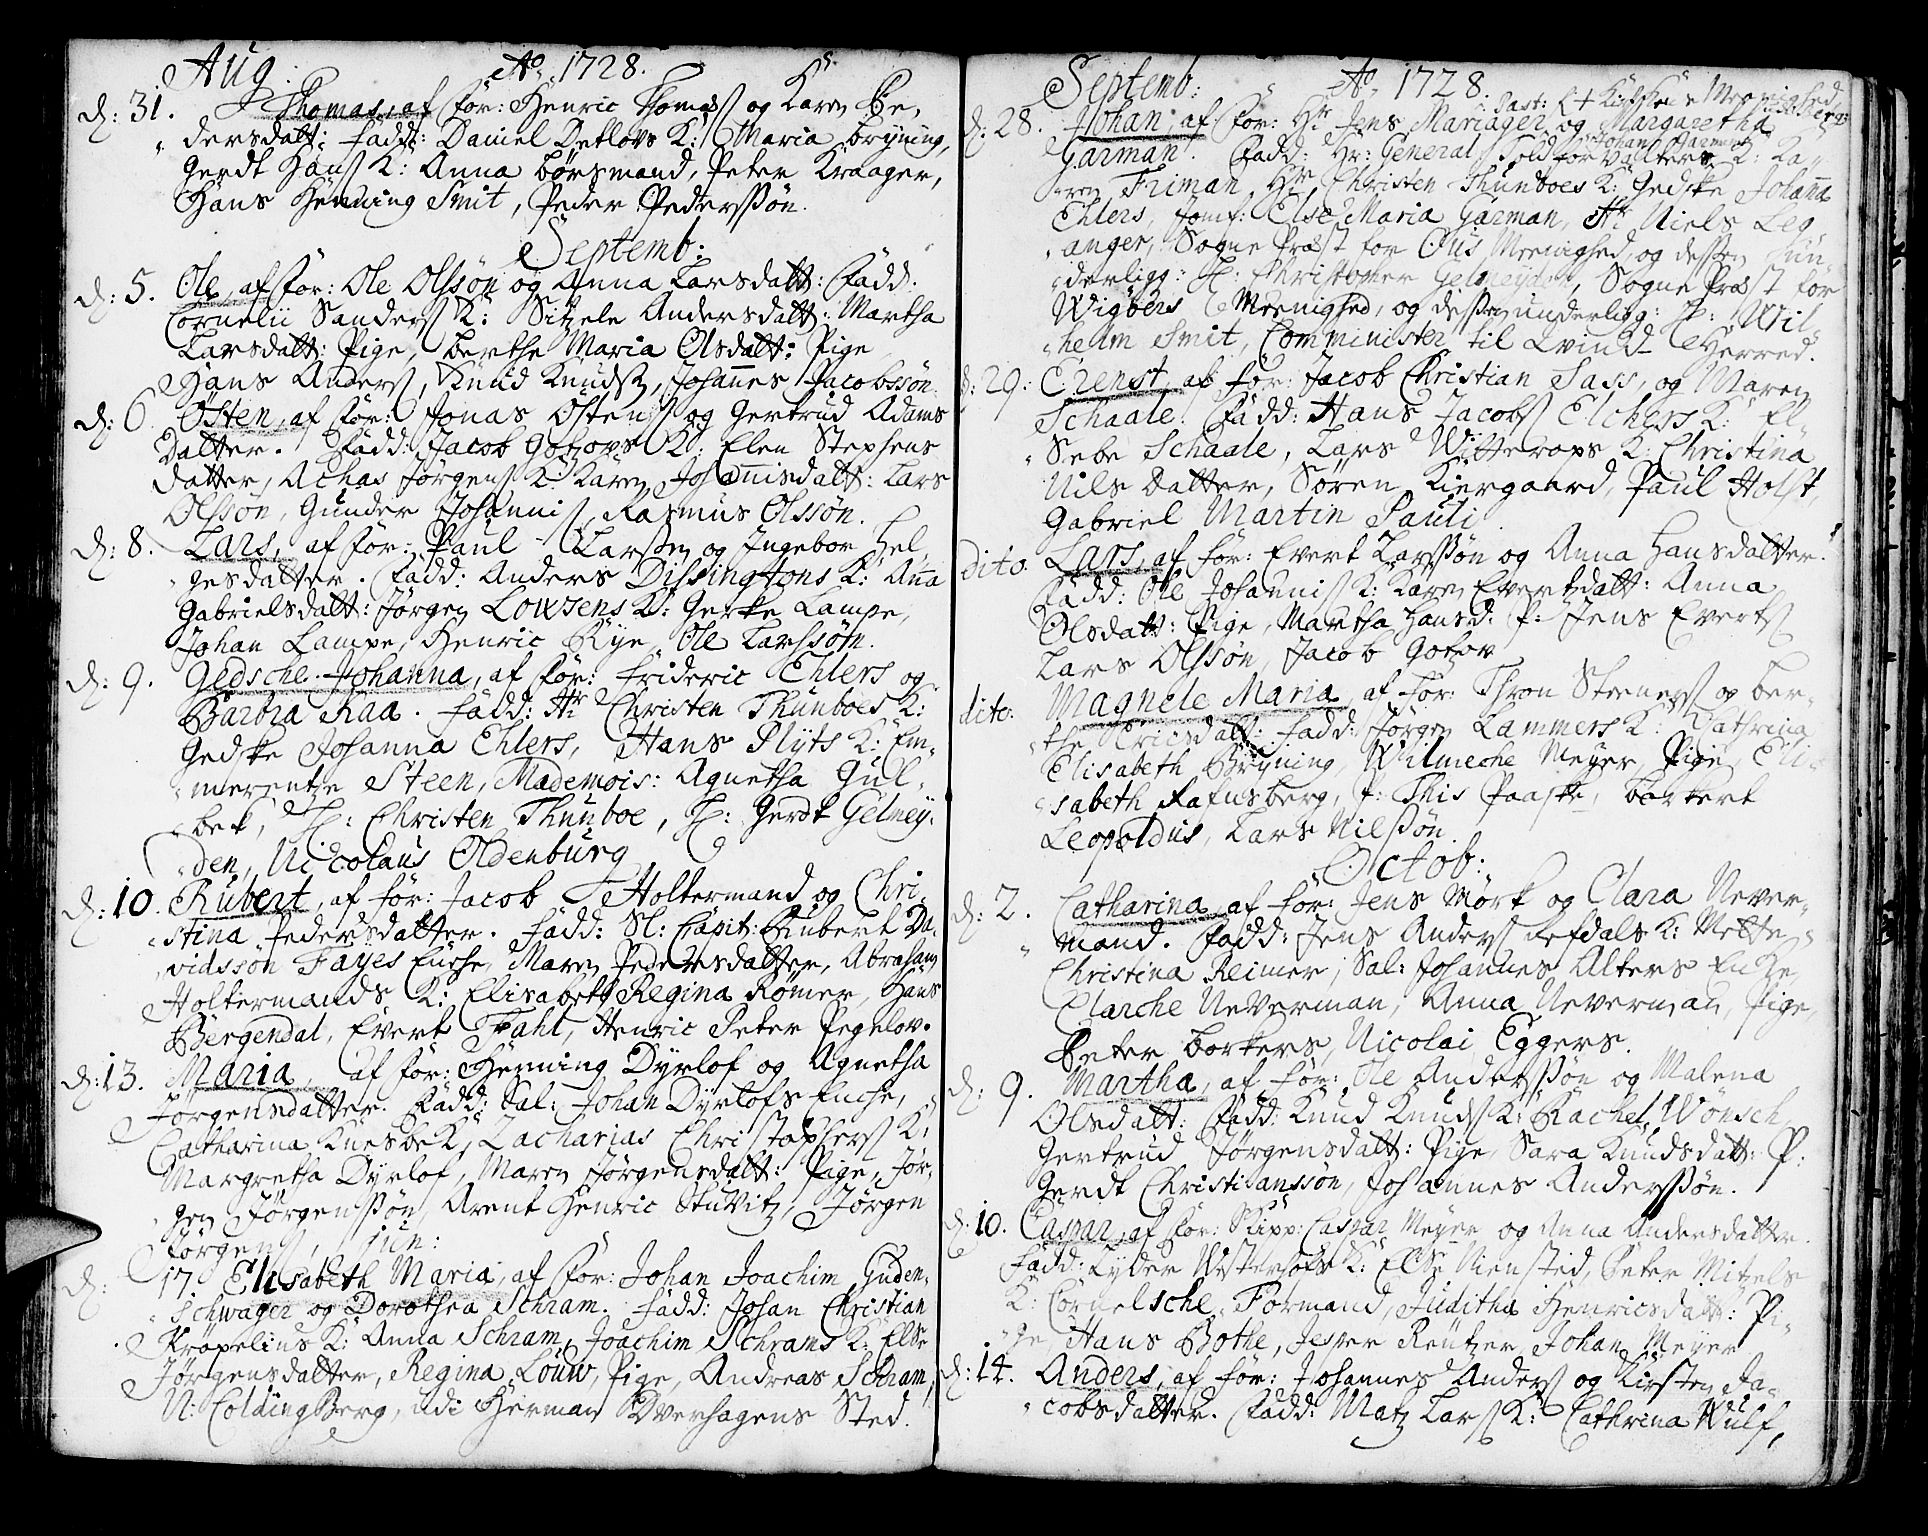 Aug: Ao. 1728.
d: 31. Thomas, af For: Henric Thomas og Karen Pe-
dersdatt: Fadd: Daniel Detlovs K: Maria Bryning,
Gerdt Hans K: Anna Børsmand, Peter Kraager,
Hans Henning Smit, Peder Pederssøn.
Septemb:
d: 5. Ole, af For: Ole Olssøn og Anna Larsdatt: Fadd:
Cornelii Sanders K: Sitzele Andersdatt: Martha
Larsdatt: Pige, Berthe Maria Olsdatt: Pige
Hans Anders, Knud Knuds, Johannes Jacobssøn.
d: 6. Østen, af For: Jonas Østens og Gertrud Adams
Datter. Fadd: Jacob Gotzovs K: Elen Stephens
datter, Achas Jørgens K: Karen Johannisdatt: Lars
Olsson, Gunder Johannis, Rasmus Olssøn.
d: 8. Lars, af For: Paul Larssen og Ingebor Hel-
gesdatter. Fadd: Anders Dissingtons K: Anna
Gabrielsdatt: Jørgen Lowsens K: Gerke Lampe,
Johan Lampe, Henric Rye, Ole Larssøn.
d: 9. Gedsche Johanna, af For: Frideric Ehlers og
Barbra Raa. Fadd: Hr. Christen Thunboes K:
Gedske Johanna Ehlers, Hans Plÿts K: Em-
merentze Steen, Mademois: Agnetha Gul-
bek, H: Christen Thunboe, H: Gerdt Gelmey-
den, Nicolaus Oldenburg
d: 10. Rubert, af For: Jacob Holtermand og Chri-
stina Pedersdatter. Fadd: Sl: Capit: Rubert Da-
vidssøn Fayes Enche, Maren Pedersdatter, Abraham
Holtermands K: Elisabeth Regina Rømer, Hans
Bergendal, Evert Fahl, Henric Peter Pegelov.
d: 13. Maria, af For: Henning Dyrlof og Agnetha
Jørgensdatter. Fadd: Sal: Johan Dyrlofs Enche,
Catharina Kuesbek, Zacharias Christophers K:
Margretha Dyrlof, Maren Jørgensdatt: Pige, Jør-
gen Jørgenssøn, Arent Henric Stuvitz, Jørgen
Jørgens, jun:
d: 17. Elisabeth Maria, af For: Johan Joachim Guden-
Schwager og Dorothea Schram. Fadd: Johan Christian
Kröpelius K: Anna Schram, Joachim Schrams K: Else
Jørgensdatter, Regina Louw, Pige, Andreas Schram,
N: Colding Berg, udi Herman Dverhagens Sted.
Septemb: Ao. 1728.
d: 28. Johan, af For: Hr Jens Mariager Past: Kirkens Meenighed og Margaretha
Garman. Fadd: Hr: General Toldforvalter Johan Garmans K: Ka-
ren Friman, Hr. Christen Thunboes K: Gedske Johanna
Ehlers, Jomf: Else Maria Garman, Hr. Niels Leg-
anger, Sogne Præst for Ous Meenighed, og dessen Sun-
derligg: H: Christopher Gelmeyden, Sogne Præst for
Wigøers Meenighed, og dessen underligg: H: Wil-
helm Smit, Comminister til Qvind Herred.
d: 29. Erenst, af For: Jacob Christian Sass, og Maren
Schaale. Fadd: Hans Jacobs Elchers K: El-
Sebe Schaale, Lars Witterops K: Christina
Nils Datter, Søren Kiergaard, Paul Holst,
Gabriel Martin Pauli.
dito. Lars, af For: Evert Larssøn og Anna Hansdatter.
Fadd: Ole Johannis K: Karen Evertsdatt: Anna
Olsdatt: Pige, Martha Hansd: P: Jens Everts
Lars Olssøn, Jacob Gotzov
dito. Magnele Maria, af For: Thron Steeners og Ber-
the Ericsdatt: Fadd: Jørgen Lammers K: Cathrina
Elisabeth Bryning, Wilmeche Meyer, Pige, Eli-
sabeth Rafnsberg, P: This Paaske, Borkert
Leopoldus, Lars Nilssøn
Octob:
d: 2. Catharina, af For: Jens Mørk og Clara Never-
mand. Fadd: Jens Anders Refdals K: Mette
Christina Reimer, Sal: Johannes Alters Enke,
Clarche Neverman, Anna Neverman, Pige,
Peter Borkers, Nicolai Eggers.
d: 9. Martha, af For: Ole Anderssøn og Malena
Olsdatt: Fadd: Knud Knuds K: Rachel Wønsch,
Gertrud Jørgensdatt: Pige, Sara Knudsdatt: P:
Gerdt Christianssøn, Johannes Anderssøn.
d: 10. Caspar, af For: Skipp: Caspar Meyer og Anna Andersdatter.
Fadd: Lyder Westerhofs K: Else Niensted, Peter Mitzels
K: Cornelsche Formand, Juditha Henricsdatt: Pi-
ge, Hans Bothe, Jesper Reutzer, Johan Meyer
d: 14. Anders, af For: Johannes Anders og Kirsten Ja-
cobsdatter. Fadd: Matz Lars K: Cathrina Wulf,